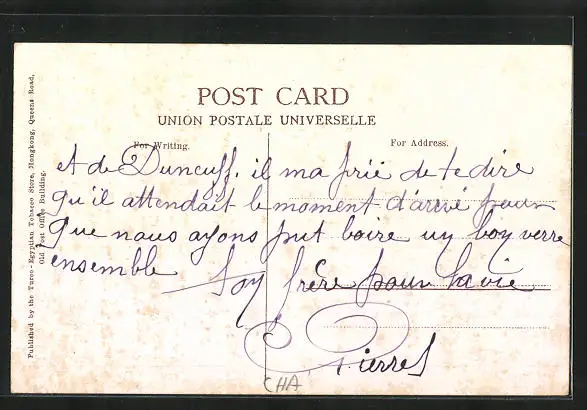 POST CARD
UNION POSTALE UNIVERSELLE
For Writing.
For Address.
et de Duncuff. il ma prié de te dire
qu'il attendait le moment d'arivé pour
que nous ayons put boire un bon verre
ensemble Ton frère pour la vie
Pierre
CHA
Published by the Turco-Egyptian Tobacco Store, Hongkong, Queens Road,
Old Post Office Building.